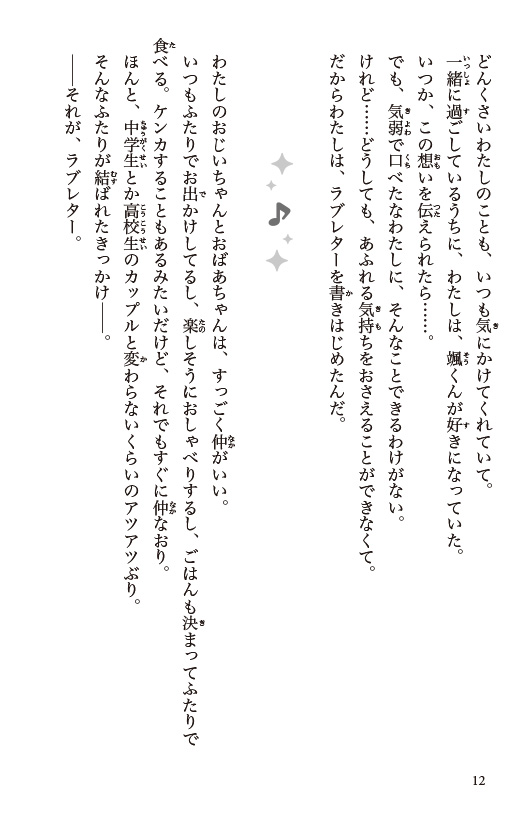 どんくさいわたしのことも、いつも気にかけてくれていて。
一緒に過ごしているうちに、わたしは、颯くんが好きになっていた。
いつか、この想いを伝えられたら……。
でも、気弱で口べたなわたしに、そんなことできるわけがない。
けれど……どうしても、あふれる気持ちをおさえることができなくて。
だからわたしは、ラブレターを書きはじめたんだ。
わたしのおじいちゃんとおばあちゃんは、すっごく仲がいい。
いつもふたりでお出かけしてるし、楽しそうにおしゃべりするし、ごはんも決まってふたりで
食べる。ケンカすることもあるみたいだけど、それでもすぐに仲なおり。
ほんと、中学生とか高校生のカップルと変わらないくらいのアツアツぶり。
そんなふたりが結ばれたきっかけ――。
――それが、ラブレター。
12